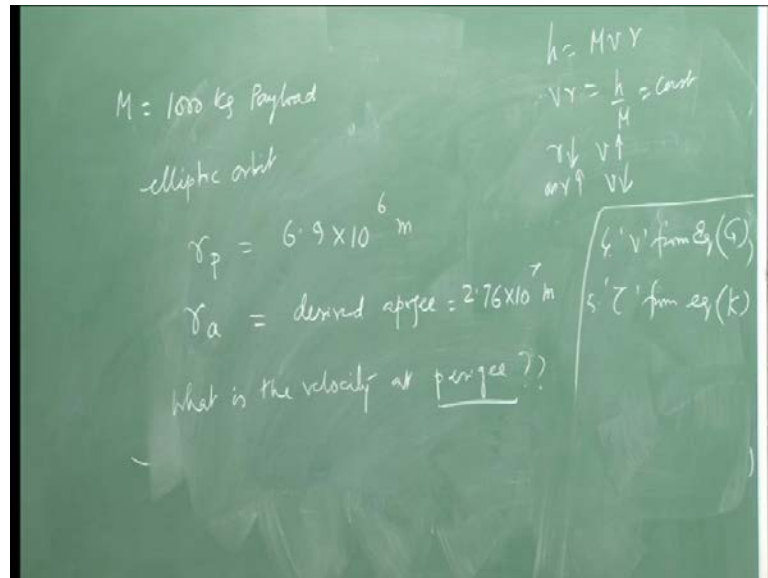 M = 1000 kg Payload
elliptic orbit
r_p = 6.9 × 10^6 m
r_a = desired apogee = 2.76×10^7 m
What is the velocity at perigee??
h = MVr
Vr = h/M = const
r↓ V↑
as r↑ V↓
'V' from Eq (G),
'τ' from eq (K)